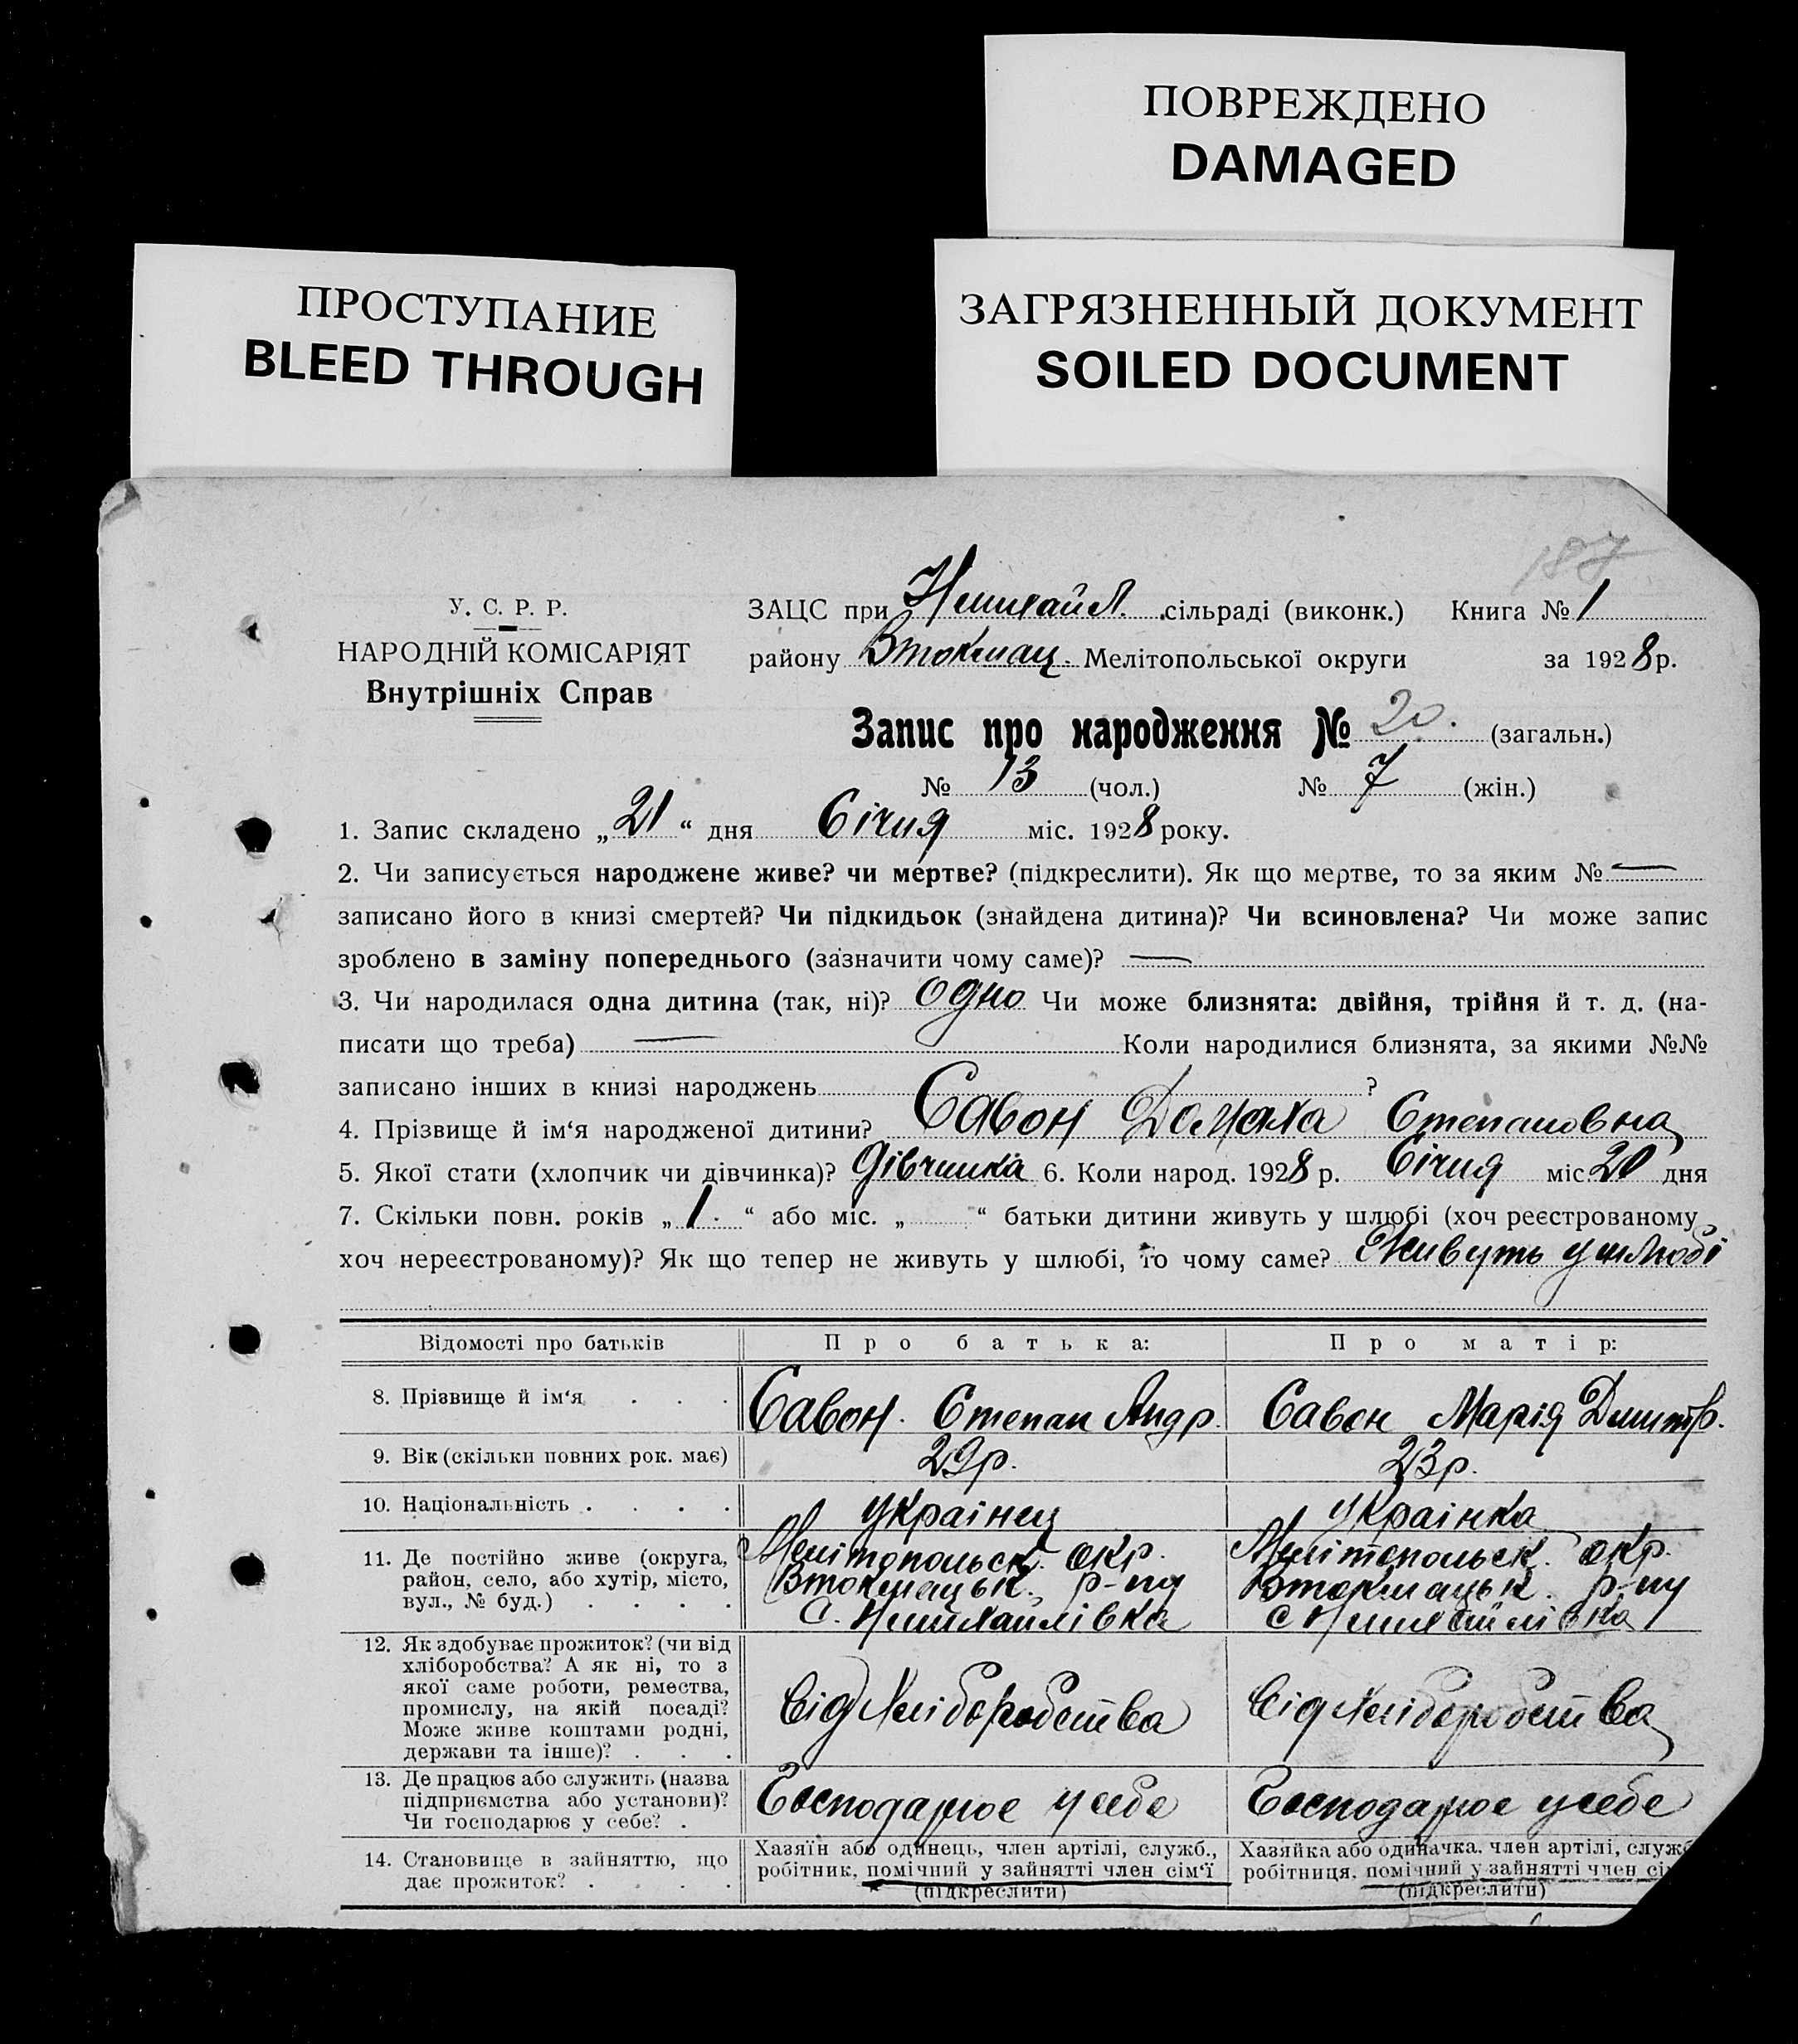 ПОВРЕЖДЕНО
DAMAGED
ПРОСТУПАНИЕ
BLEED THROUGH
ЗАГРЯЗНЕННЫЙ ДОКУМЕНТ
SOILED DOCUMENT
187
У. С. Р. Р.
НАРОДНІЙ КОМІСАРІЯТ
Внутрішніх Справ
ЗАЦС при Нмихайл. сільраді (виконк.) Книга № 1
району Втокмац. Мелітопольської округи за 1928 р.
Запис про народження № 20. (загальн.)
№ 13 (чол.) № 7 (жін.)
1. Запис складено „21“ дня Січня міс. 1928 року.
2. Чи записується народжене живе? чи мертве? (підкреслити). Як що мертве, то за яким № —
записано його в книзі смертей? Чи підкидьок (знайдена дитина)? Чи всиновлена? Чи може запис
зроблено в заміну попереднього (зазначити чому саме)? —
3. Чи народилася одна дитина (так, ні)? Одно Чи може близнята: двійня, трійня й т. д. (на-
писати що треба) — Коли народилися близнята, за якими №№
записано інших в книзі народжень ?
4. Прізвище й ім‘я народженої дитини? Савон Домаха Степановна
5. Якої стати (хлопчик чи дівчинка)? Дівчинка 6. Коли народ. 1928 р. Січня міс. 20 дня
7. Скільки повн. років „1.“ або міс. „ “ батьки дитини живуть у шлюбі (хоч реєстрованому
хоч нереєстрованому)? Як що тепер не живуть у шлюбі, то чому саме? Живуть у шлюбі
Відомості про батьків Про батька: Про матір:
8. Прізвище й ім‘я . . . Савон. Степан Андр. Савон Марія Дмитр.
9. Вік (скільки повних рок. має) 29р. 23р.
10. Національність . . . . Українец Українка
11. Де постійно живе (округа,
район, село, або хутір, місто,
вул., № буд.) . . . .
Мелітопольськ. окр.
Втокмацьк. р-ну
С. Нмихайлівка
Мелітопольск. окр.
Втокмацьк. р-ну
с Нмихайлівка
12. Як здобуває прожиток? (чи від
хліборобства? А як ні, то з
якої саме роботи, ремества,
промислу, на якій посаді?
Може живе коштами родні,
держави та інше)? . . .
Від хліборобства
Від хліборобства
13. Де працює або служить (назва
підприємства або установи)?
Чи господарює у себе? .
Господарює у себе
Господарює у себе
14. Становище в зайняттю, що
дає прожиток? . . . .
Хазяїн або одинець, член артілі, служб.,
робітник, помічний у зайнятті член сім‘ї
(підкреслити)
Хазяйка або одиначка, член артілі, служб
робітниця, помічний у зайнятті член сі
(підкреслити)